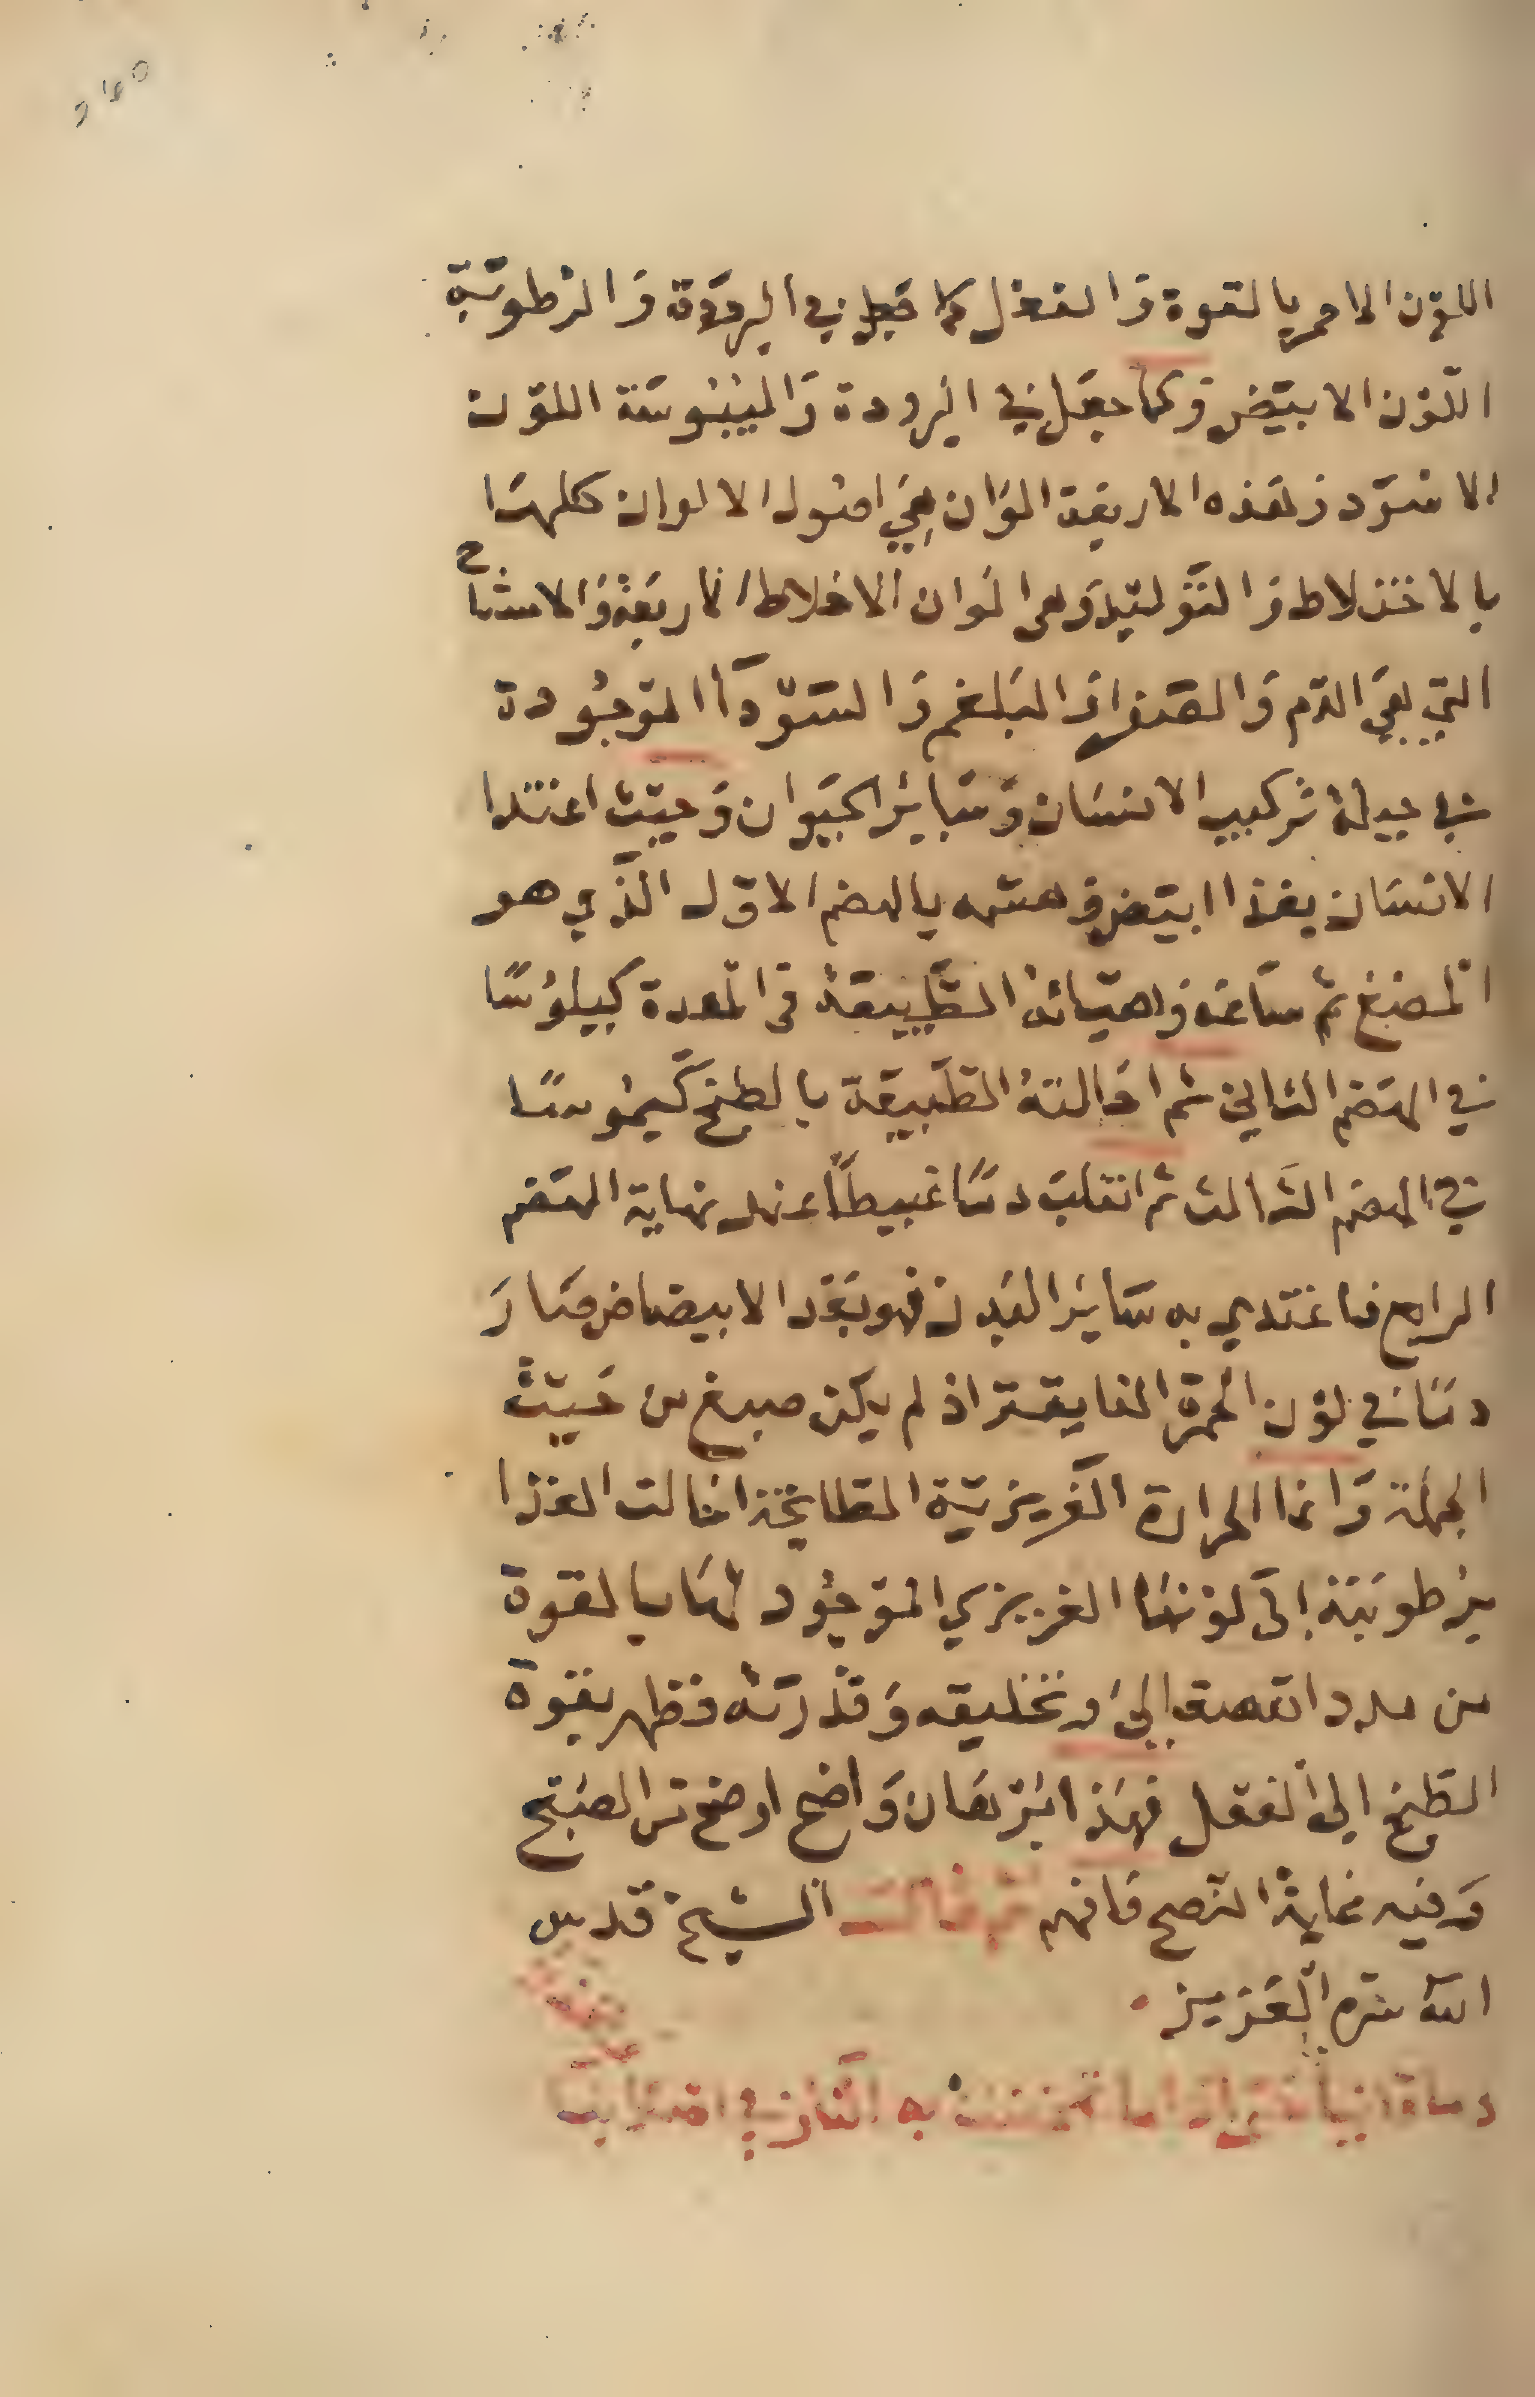 اللون الاحمر بالقوة والفعل كما جعل في البرودة والرطوبة
اللون الابيض وكما جعل في البرودة واليبوسة اللون
الاسود فهذه الاربعة الوان هي اصول الالوان كلها
بالاختلاط والتوليد وهي الوان الاخلاط الاربعة والامشاج
التي هي الدم والصفرا والبلغم والسودآ الموجودة
في جبلة تركيب الانسان وسائر الحيوان وحيث اغتدا
الانسان بغذا ابيض وهشمه بالهضم الاول الذي هو
المضغ ثم ساغه واهيأته الطبيعة في المعدة كيلوسًا
في الهضم الثاني ثم احالته الطبيعة بالطبخ كيموسًا
في الهضم الثالث ثم انقلب دمًا غبيطًا عند نهاية الهضم
الرابع فاغتدي به سائر البدن فهو بعد الابيضاض صار
دمًا في لون الحمرة الفايقة اذ لم يكن صبغ من حيث
الجملة وانما الحرارة الغريزية الطابخة احالت الغذا
برطوبته إلى لونها الغريزي الموجود لها بالقوة
من مدد الهي وتخليقه وقدرته فظهر بقوة
الطبخ الى الفعل فهذا برهان واضح اوضح من الصبح
وفيه غاية النصح فافهم ثم قال الشيخ قدس
الله سره العزيز
به النار في